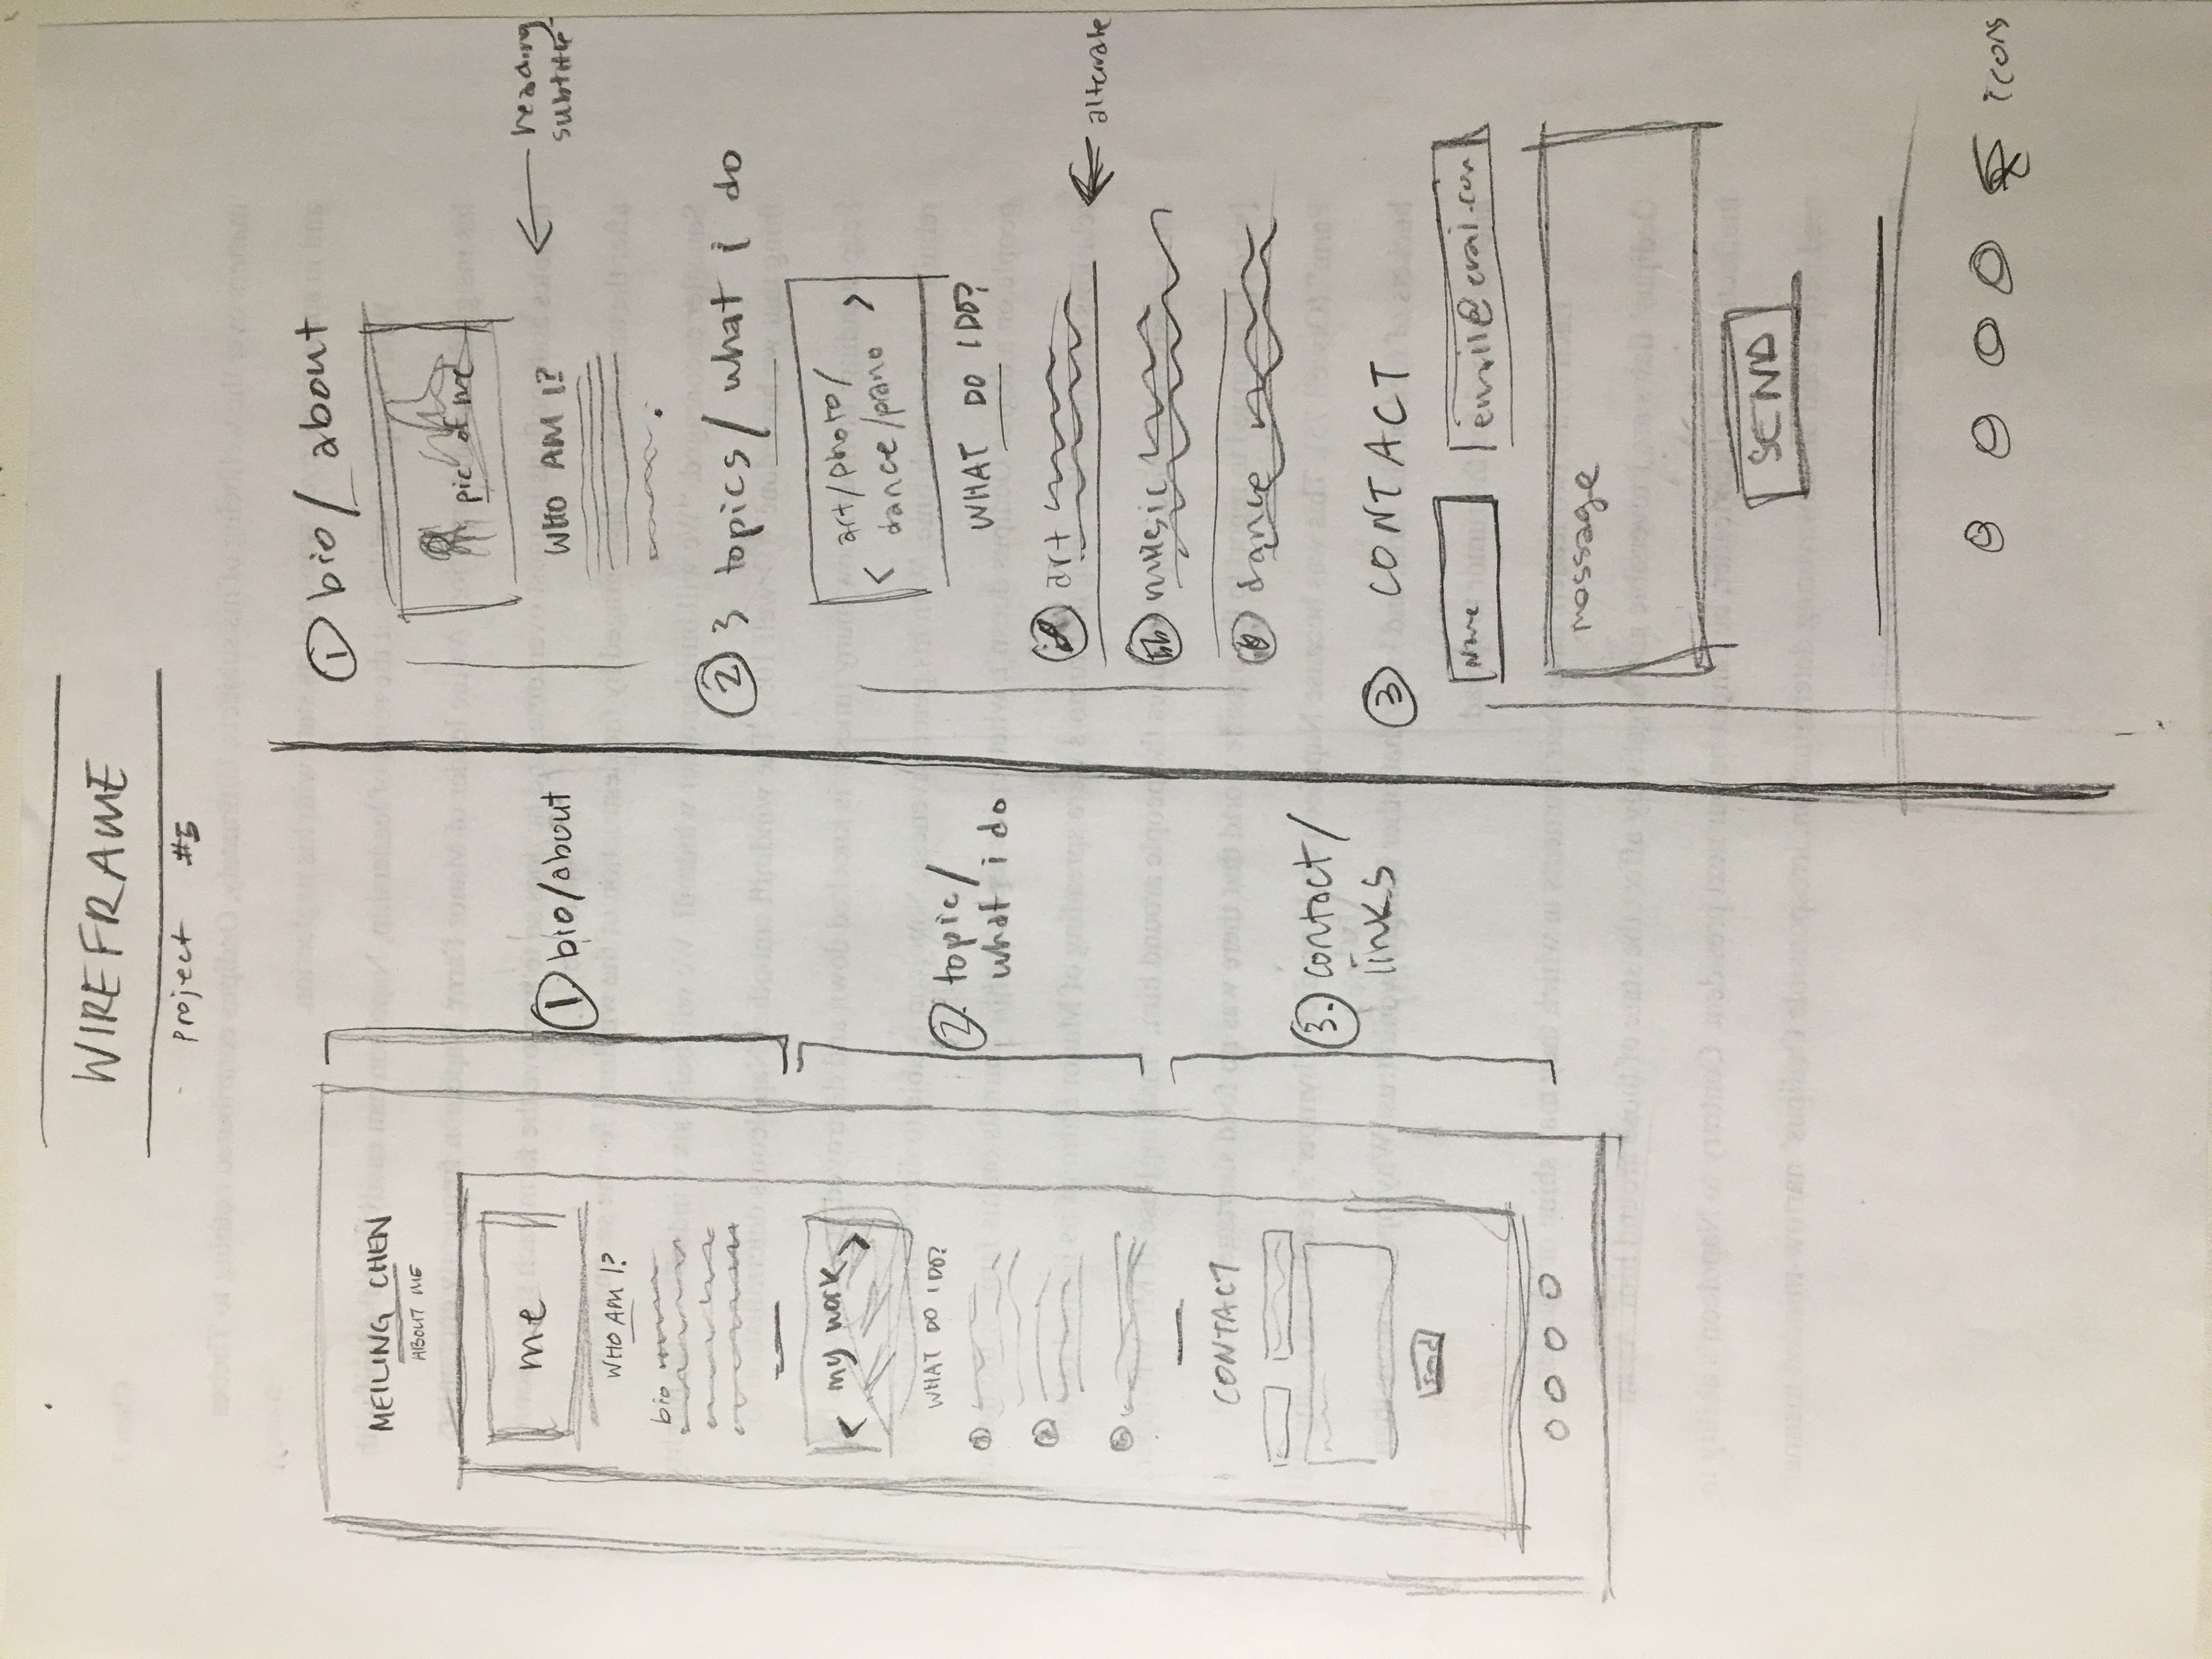 WIREFRAME
Project #5
MEILING CHEN
ABOUT ME
me
WHO AM I?
bio
< my work >
WHAT DO I DO?
CONTACT
Send
① bio/about
② topic/
what i do
③. contact/
links
① bio/about
pic of me
WHO AM I?
heading
subtitle
② 3 topics/what i do
< art/photo/
dance/piano >
WHAT DO I DO?
art
music
dance
alternate
③ CONTACT
Name
message
SEND
icons